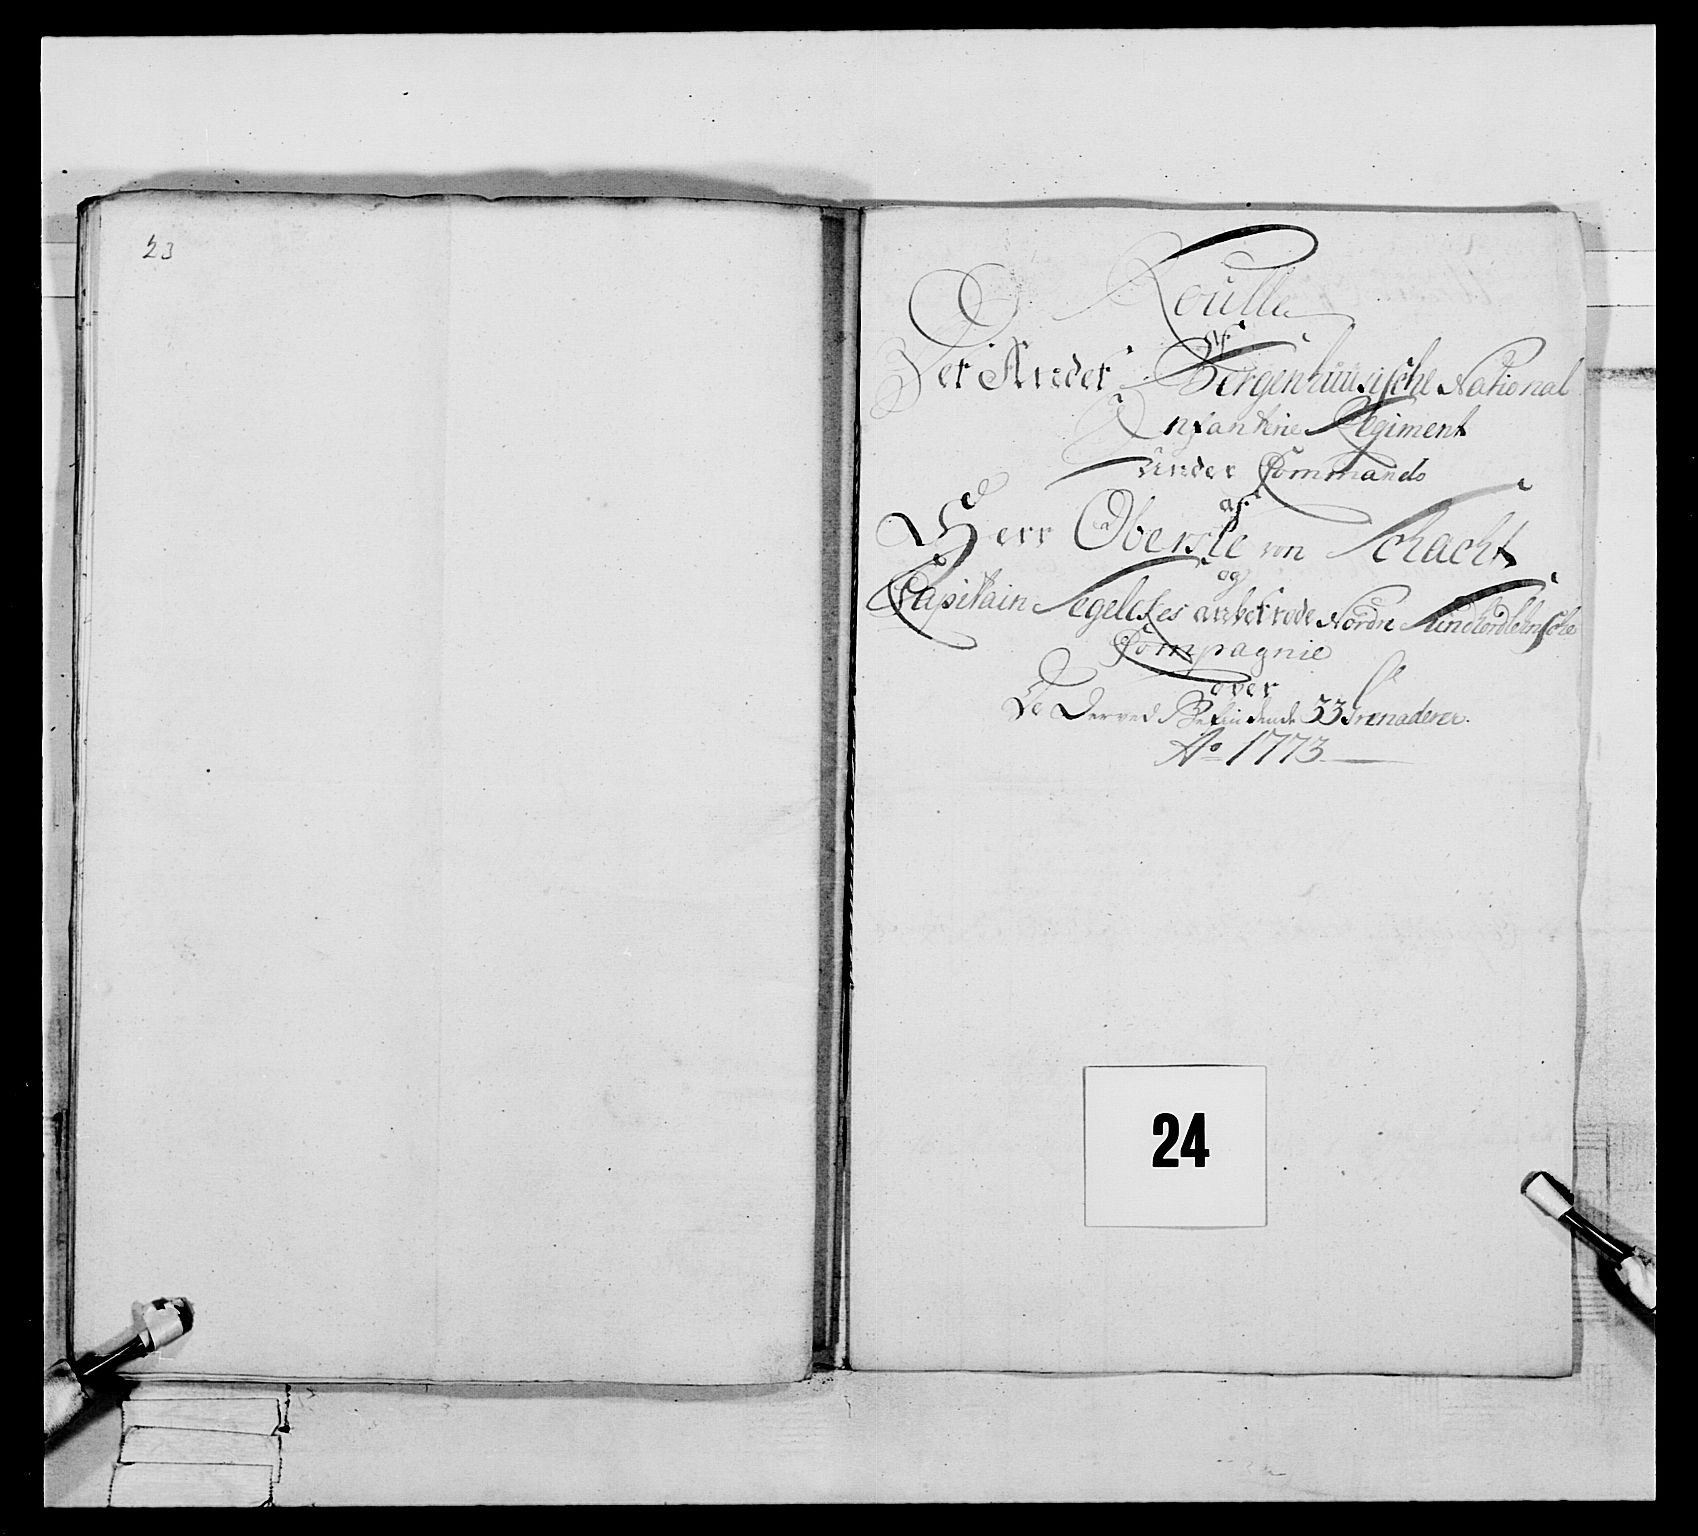 23
Roulle
af
Det Andet Bergenhuusische National
Infanterie Regiment
Under Commando
af
Herr Oberste von Schacht
og
Capitain Segelckes anbetrode Nordre Sundhordlehnsche
Compagnie
over
De Derved Befindende 33 Grenaderer.
Ao 1773
24